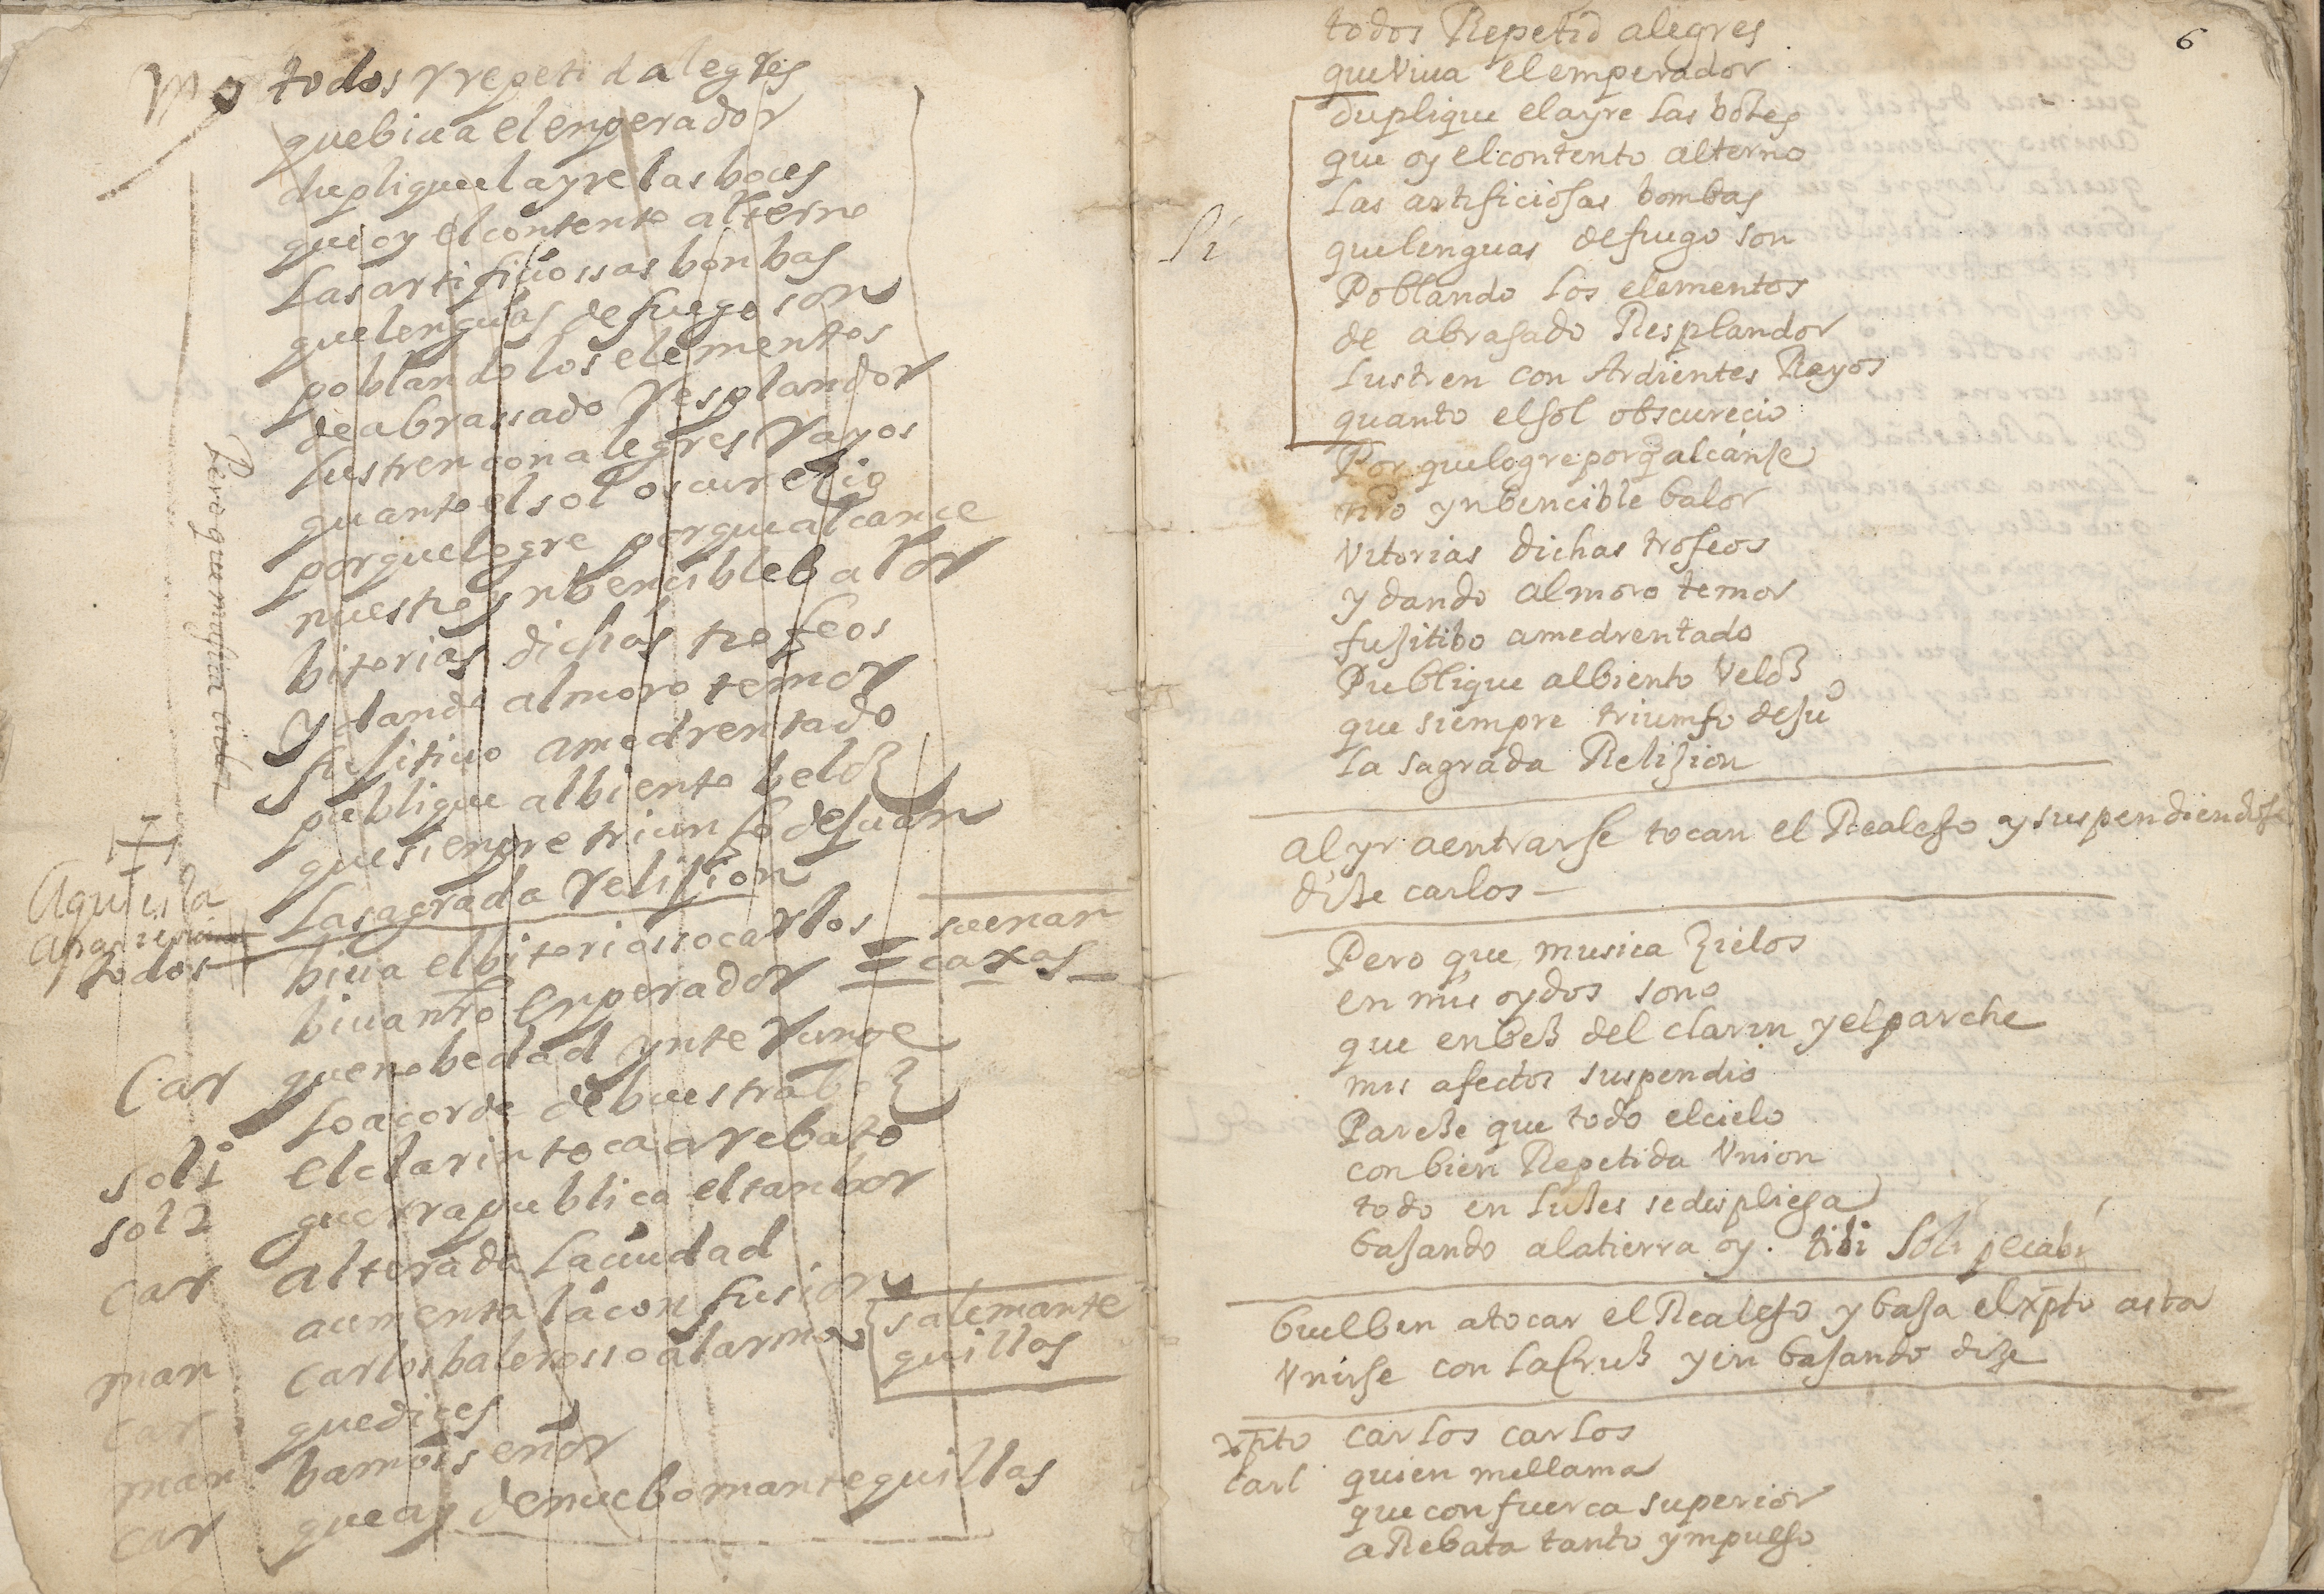 todos Yrepeti d alegres
quebiua el enperador
dupliqueel ayre las boces
que oy el contento alterno
Las artifiçiossas bonbas
que lenguas de fuego son
poblando los elementos
de abrassado Yesplandor
Lustren con alegres Yayos
quanto el sol oscureçio
porque logre porque alcance
nuestro ynbencible balor
bitorias dichas trofeos
y dando al moro temor
fujitiuo amedrentado
publique albiento beloz
que sienpre triunfo de
La sagrada Yelijion
Aqui es la
todos biua el bitoriosso carlos suenan
biua nro Enperador = caxas
Car que nobedad ynteRunpe
Lo acorde de buestra boz
sol 1 el clarin toca a rebato
sol 2 guerra publica el tanbor
car alterada La ciudad
aumenta la confusion
man carlos balerosso al arma sale mante
quillas
car que dices
man bamos señor
car que ay de nuebo mantequillas
Pero que musica
6
todos Repetid alegres
que Viua el emperador
Duplique el ayre las bozes
que oy el contento alterno
Las artificiosas bombas
Si que lenguas de fuego son
Poblando los elementos
de abrasado Resplandor
Lustren con Ardientes Rayos
quanto el sol obscurecio
Por que logre porq̃ alcanse
nrõ ynbencible balor
Vitorias dichas trofeos
y dando al moro temor
fujitibo amedrentado
Publique albiento Veloz
que siempre triumfo de su
La sagrada Relijion
al yr aentrarse tocan el Realejo y suspendiendose
dize carlos —
Pero que musica Zielos
en mis oydos sono
que en bez del clarin y el parche
mis afectos suspendio
Pareze que todo el cielo
con bien Repetida Vnion
todo en luzes se despliega
bajando a la tierra oy. tibi soli pecabi
buelben a tocar el Realejo y baja el xpto asta
Vnirse con la Cruz y en bajando dize
xpto carlos carlos
Carl quien me llama
que con fuerca superior
aRebata tanto ympulso